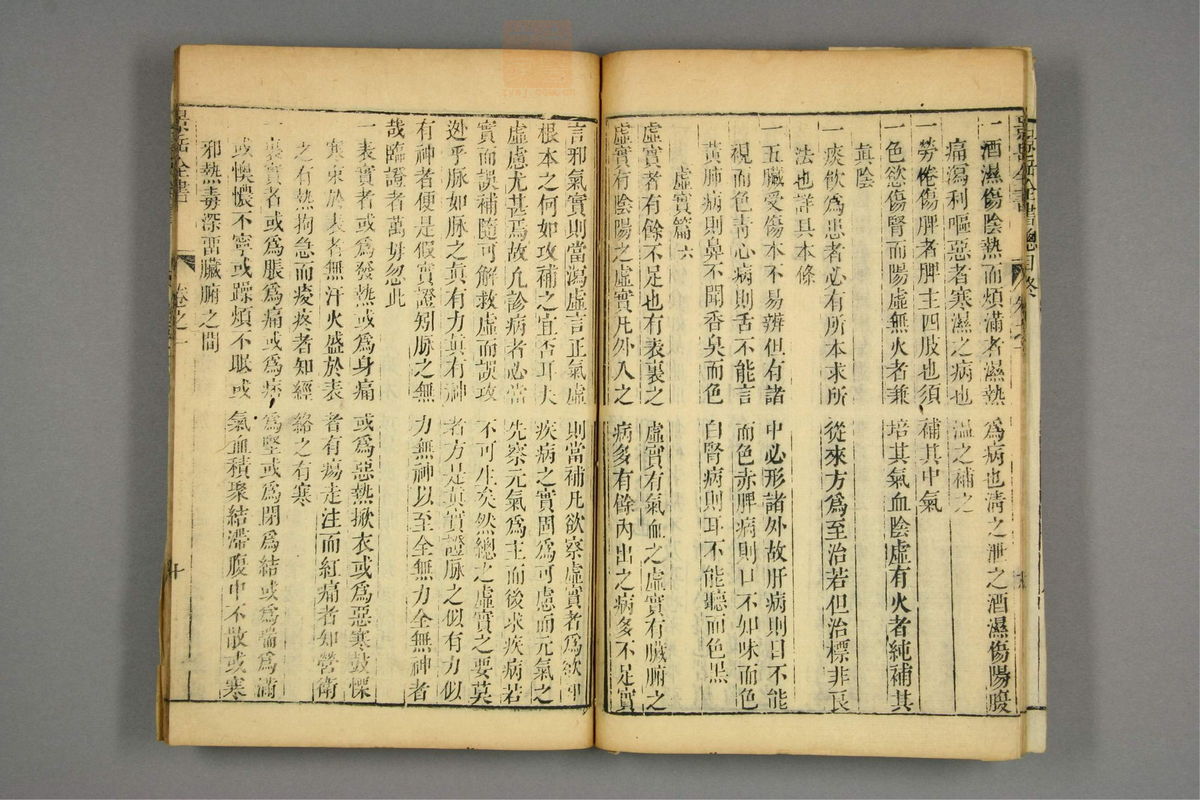 一酒濕傷陰熱而煩滿者濕熱爲病也清之泄之酒濕傷陽腹
痛瀉利嘔惡者寒濕之病也溫之補之
一勞倦傷脾者脾主四肢也須補其中氣
一色慾傷腎而陽虛無火者兼培其氣血陰虛有火者純補其
眞陰
一痰飲爲患者必有所本求所從來方爲至治若但治標非良
法也詳具本條
一五臟受傷本不易辨但有諸中必形諸外故肝病則目不能
視而色靑心病則舌不能言而色赤脾病則口不知味而色
黃肺病則鼻不聞香臭而色白腎病則耳不能聽而色黑
虛實篇 六
虛實者有餘不足也有表裏之虛實有氣血之虛實有臟腑之
虛實有陰陽之虛實凡外入之病多有餘內出之病多不足實
言邪氣實則當瀉虛言正氣虛則當補凡欲察虛實者爲欲知
根本之何如攻補之宜否耳夫疾病之實固爲可慮而元氣之
虛慮尤甚焉故凡診病者必當先察元氣爲主而後求疾病若
實而誤補隨可解救虛而誤攻不可生矣然總之虛實之要莫
逃乎脉如脉之眞有力眞有神者方是眞實證脉之似有力似
有神者便是假實證矧脉之無力無神以至全無力全無神者
哉臨證者萬毋忽此
一表實者或爲發熱或爲身痛或爲惡熱掀衣或爲惡寒鼓慄
寒束於表者無汗火盛於表者有瘍走注而紅痛者知營衛
之有熱拘急而痠疼者知經絡之有寒
裏實者或爲脹爲痛或爲痞爲堅或爲閉爲結或爲喘爲滿
或懊憹不寧或躁煩不眠或氣血積聚結滯腹中不散或寒
邪熱毒深畱臟腑之間
景岳全書
卷之一
十